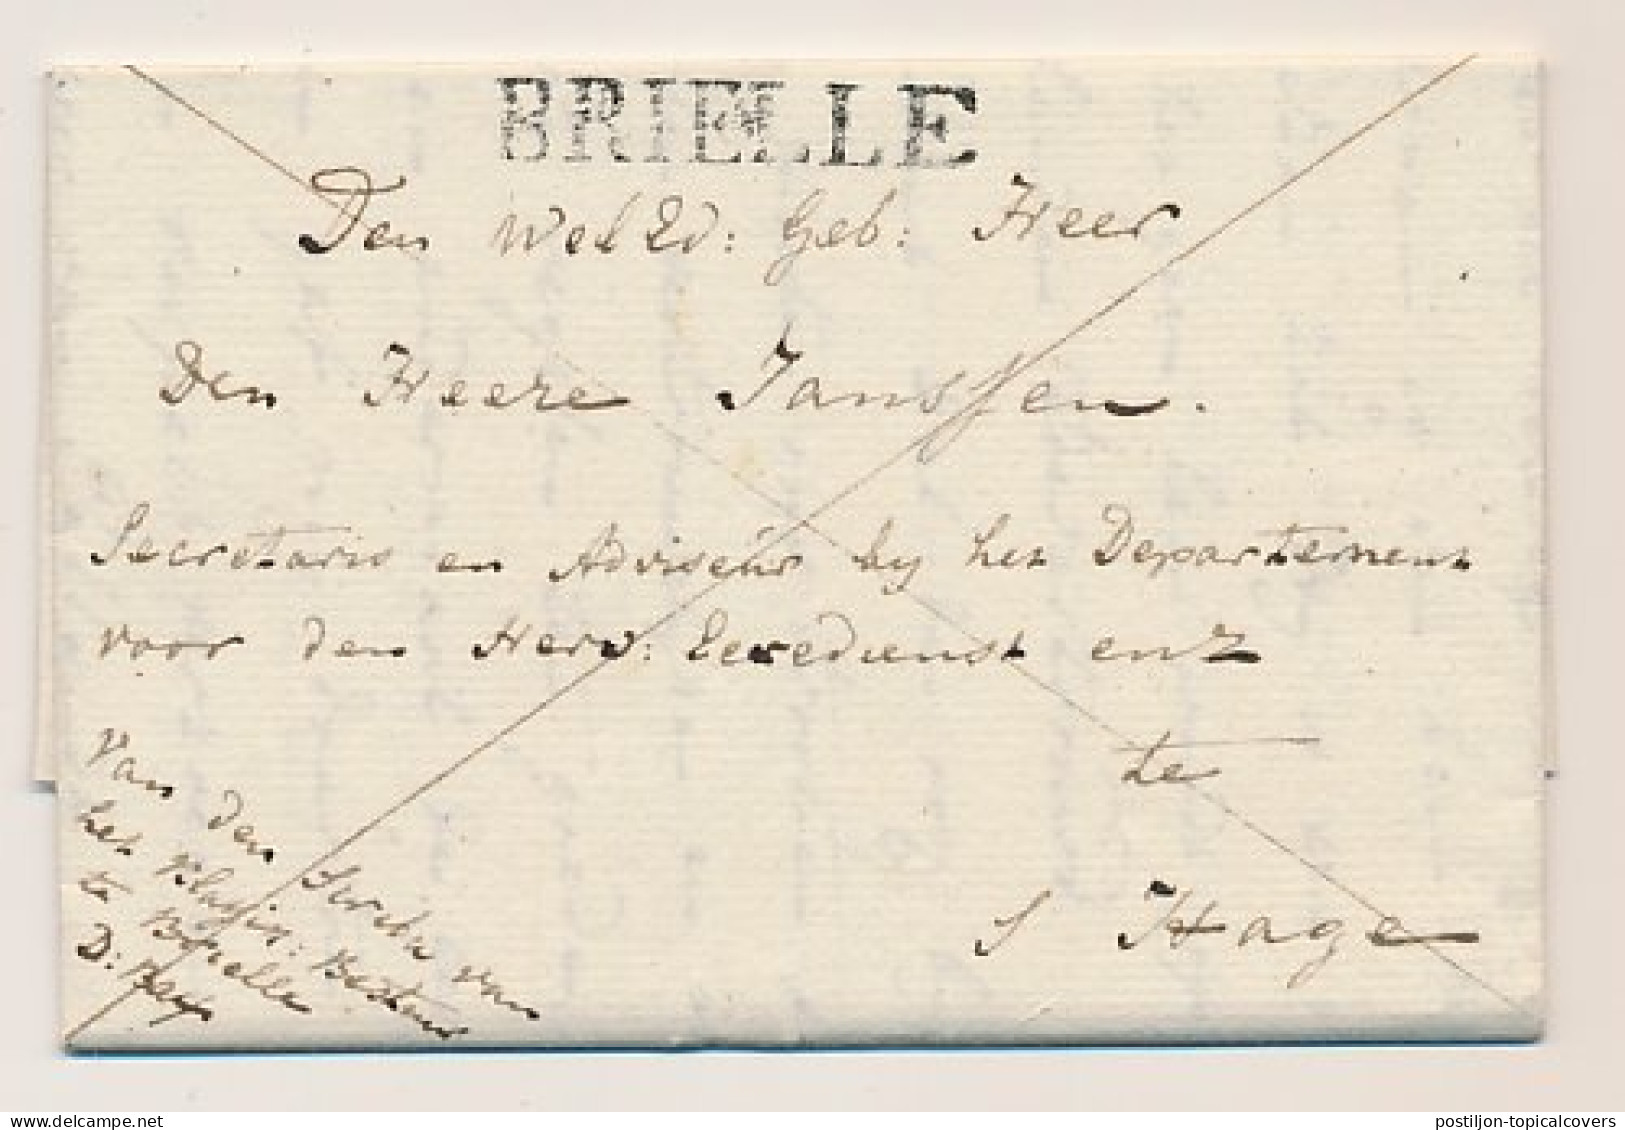 BRIELLE
Den WelEd: Geb: Heer
Den Heere Janssen.
Secretaris en Adviseur by het Departement
voor den Herv: Eeredienst enz
te
S Hage
Van den Scriba van
het Klassic: Bestuur
te Brielle
D:
postiljon-topicalcovers